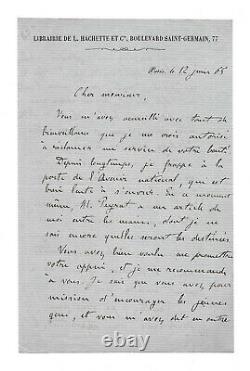 LIBRAIRIE DE L. HACHETTE ET Cie, BOULEVARD SAINT-GERMAIN, 77
Paris le 12 janvier 65
Cher monsieur,
Vous m'avez accueilli avec tant de
bienveillance que je me crois autorisé
à réclamer un service de votre bonté.
Depuis longtemps, je frappe à la
porte de l'Avenir national, qui est
bien lente à s'ouvrir. En ce moment
même, M. Peyrat a un article de
moi entre les mains, dont je ne
sais encore quelles seront les destinées.
Vous avez bien voulu me promettre
votre appui, et je me recommande
à vous. Je sais que vous avez pour
mission d'encourager les jeunes
gens, et vous m'avez dit en outre
ebay